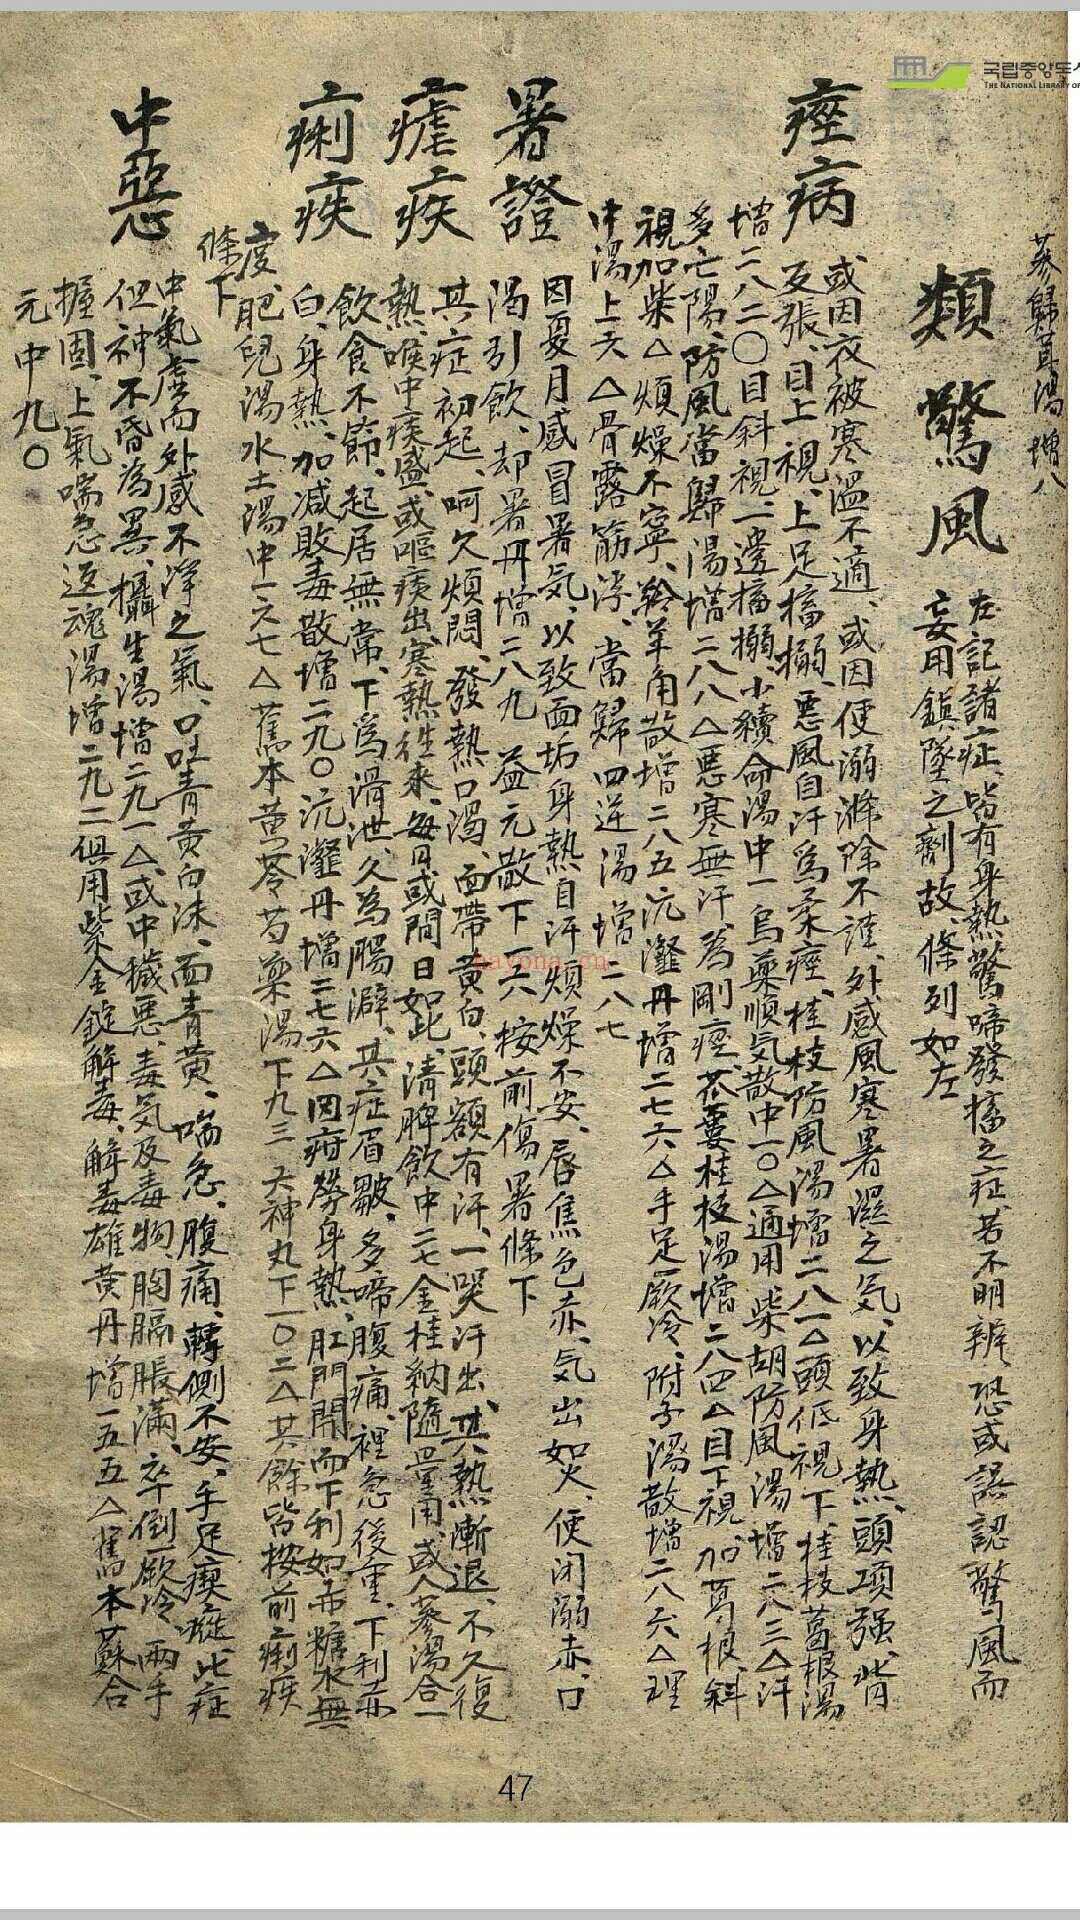 국립중앙도서
THE NATIONAL LIBRARY OF
蔘歸茸湯增八
類驚風
左記諸症皆有身熱驚啼發搐之症若不明辨恐或誤認驚風而
妄用鎮墜之劑故條列如左
痙病
或因衣被寒溫不適、或因使溺滌除不謹、外感風寒暑濕之気、以致身熱、頭項强、背
反張、目上視、上足搐搦、惡風自汗爲柔痙、桂枝防風湯增二八一△頭低視下、桂枝葛根湯
增二八二〇目斜視一邊搐搦小續命湯中一烏藥順気散中一〇△通用柴胡防風湯增二八三△汗
多亡陽、防風當歸湯增二八八△惡寒無汗、爲剛痙、苽蔞桂枝湯增二八四△目下視、加葛根、斜
視加柴△煩燥不寧、羚羊角散增二八五沆瀣丹增二七六△手足厥冷、附子湯散增二八六△理
中湯上六△骨露筋浮、當歸四逆湯增二八七
暑證
因夏月感冒暑気、以致面垢身熱自汗煩燥不安、唇焦色赤、気出如火、便閉溺赤、口
渴引飲、却暑丹增二八九 益元散下一六 按前傷暑條下
瘧疾
其症初起、呵欠煩悶、發熱口渴、面帶黃白、頭額有汗、一哭汗出、其熱漸退、不久復
熱、喉中痰盛、或嘔痰出、寒熱徃来、每日或間日如此、清脾飲中二七 金桂納隨量用、或人蔘湯合
痢疾
飲食不節、起居無常、下爲滑泄、久爲腸澼、其症眉皺、多啼腹痛、裡急後重、下利赤
白、身熱、加减敗毒散增二九〇沆瀣丹增二七六△因疳勞身熱、肛門開而下利如赤糖水無
度、肥兒湯水土湯中一六七△舊本黃芩芍藥湯下九三 大神丸下一〇二△其餘皆按前痢疾
條下
中惡
中氣虛而外感不淨之氣、口吐青黃白沫、面青黃、喘急、腹痛、轉側不安、手足瘈瘲、此症
但神不昏為異、攝生湯增二九一△或中穢惡、毒気及毒物胸膈脹滿、卒倒厥冷、兩手
握固、上氣喘急返魂湯增二九二俱用紫金錠解毒、解毒雄黃丹增一五五△舊本蘇合
元中九〇
nayona.cn
47